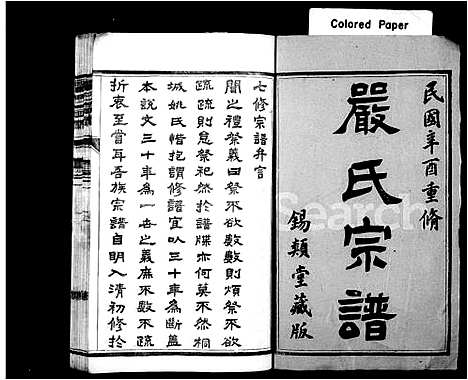 Colored Paper
民國辛酉重脩
嚴氏宗譜
錫類堂藏版
七修宗譜弁言
聞之禮祭義曰祭不欲數數則煩祭不欲
疏疏則怠祭祀然於譜牒亦何莫不然桐
城姚氏惜抱謂修譜宜以三十年為斷蓋
本說文三十年為一世之義庶不數不疏
折衷至當耳吾族宗譜自明入清初修於
Search